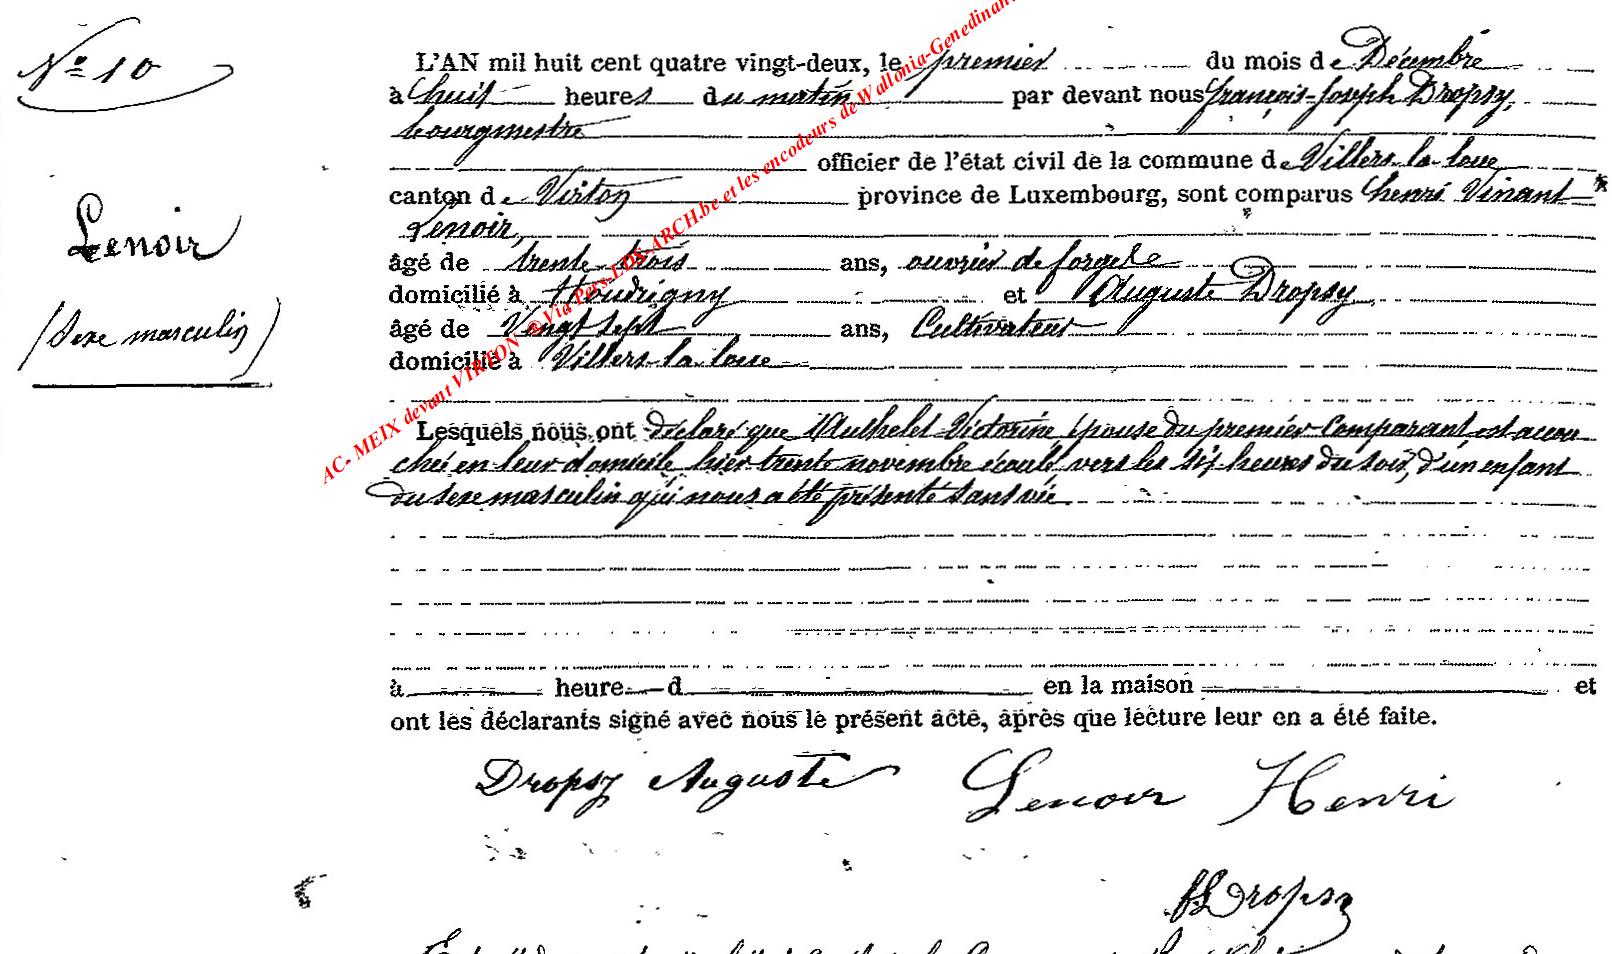 N° 10
Lenoir
(Sexe masculin)
L'AN mil huit cent quatre vingt-deux, le premier du mois de Décembre
à huit heures du matin par devant nous françois-Joseph Dropsy,
bourgmestre
officier de l'état civil de la commune de Villers-la-loue
canton de Virton province de Luxembourg, sont comparus henri Vinant
Lenoir,
âgé de trente-trois ans, ouvrier de forge
domicilié à Houdrigny et Auguste Dropsy
âgé de Vingt sept ans, Cultivateur
domicilié à Villers-la-loue
Lesquels nous ont déclaré que Authelet Victorine épouse du premier Comparant est accou
chée en leur domicile hier trente novembre écoulé vers les six heures du soir, d'un enfant
du sexe masculin qui nous a été présenté sans vie
à heure d en la maison et
ont les déclarants signé avec nous le présent acte, après que lecture leur en a été faite.
Dropsy Auguste Lenoir Henri
Dropsy
AC- MEIX devant VIRTON @Via Pers-LDS-ARCH.be et les encodeurs de Wallonia-Genedinant